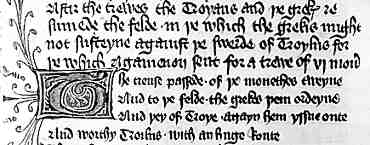 After the trewes the Troyans and þe grekes re
sumede the felde · in þe which the grekis might
not susteyne against þe swerde of Troylus for
þe which Agamenon sent for a trewe of vj moneth
The treuse passede · of þe monethes tweyne
And to þe felde · the grekes hem ordeyne
And þey of Troye · agayn hem yssue oute
And worthy Troilus · with an huge route